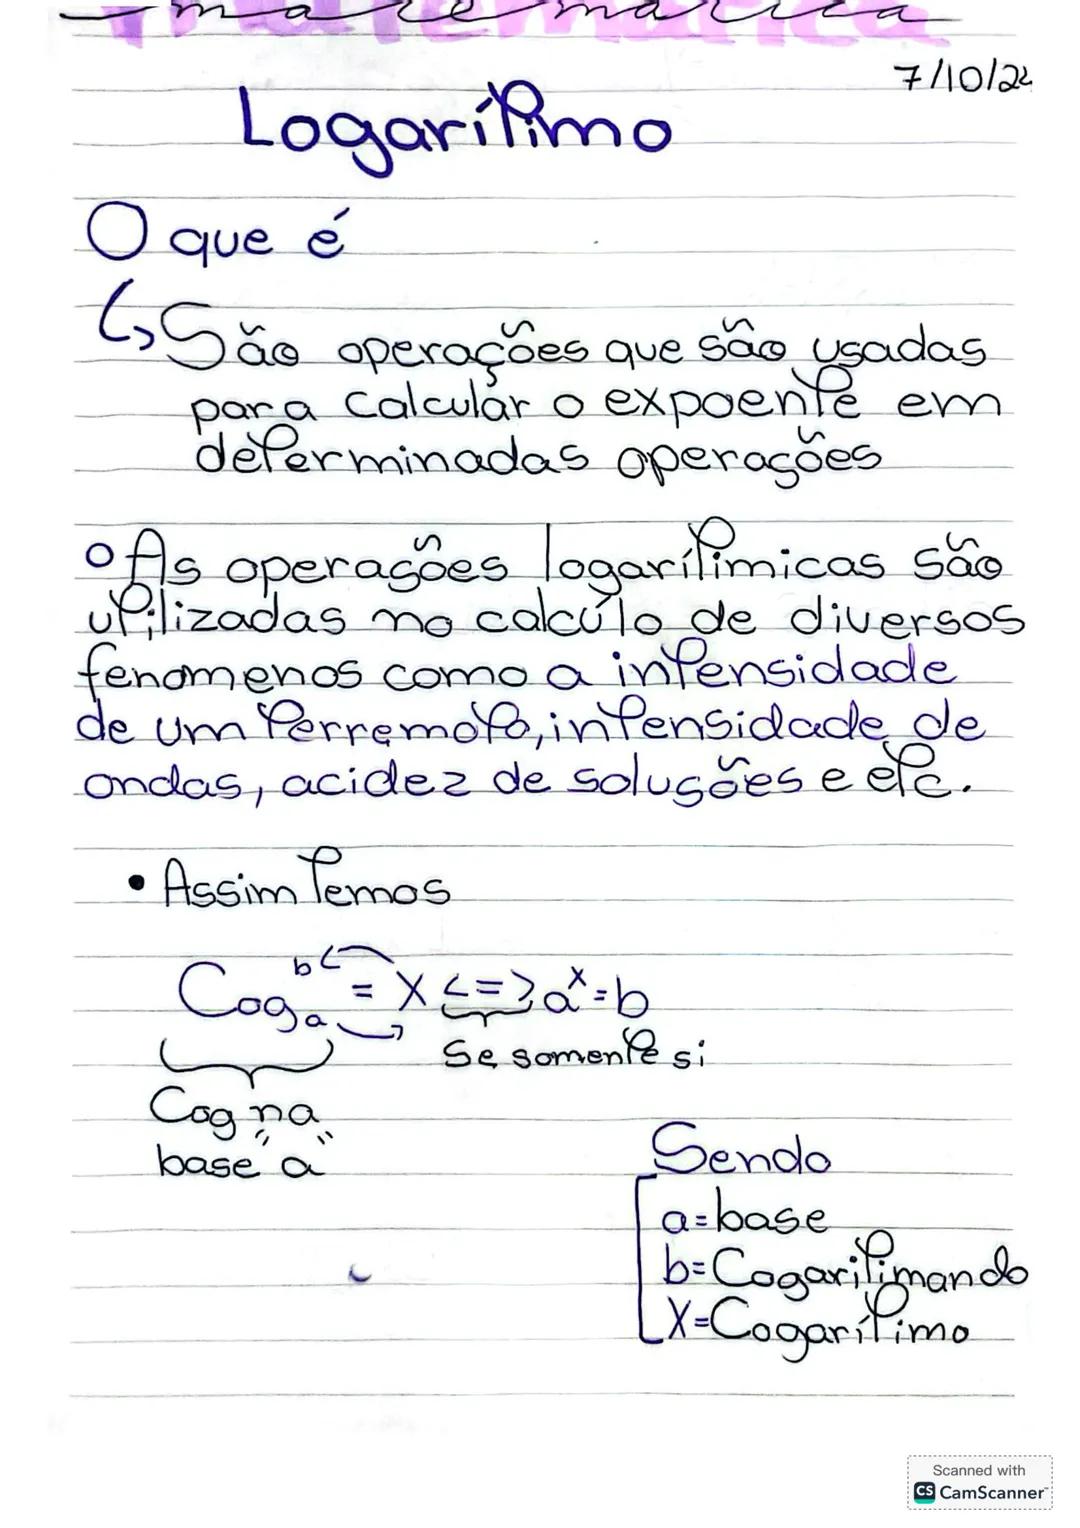 matematica
7/10/24
Logarítimo
O que é
↳ São operações que são usadas
para calcular o expoente em
determinadas operações
o As operações logarítimicas são
utilizadas no calcúlo de diversos
fenomenos como a intensidade
de um terremoto, intensidade de
ondas, acidez de soluções e etc.
• Assim temos
Log_a^b = x <=> a^x = b
Se somente si
Log na
base "a"
Sendo
a=base
b=Logaritimando
X=Logarítimo
Scanned with
CS CamScanner